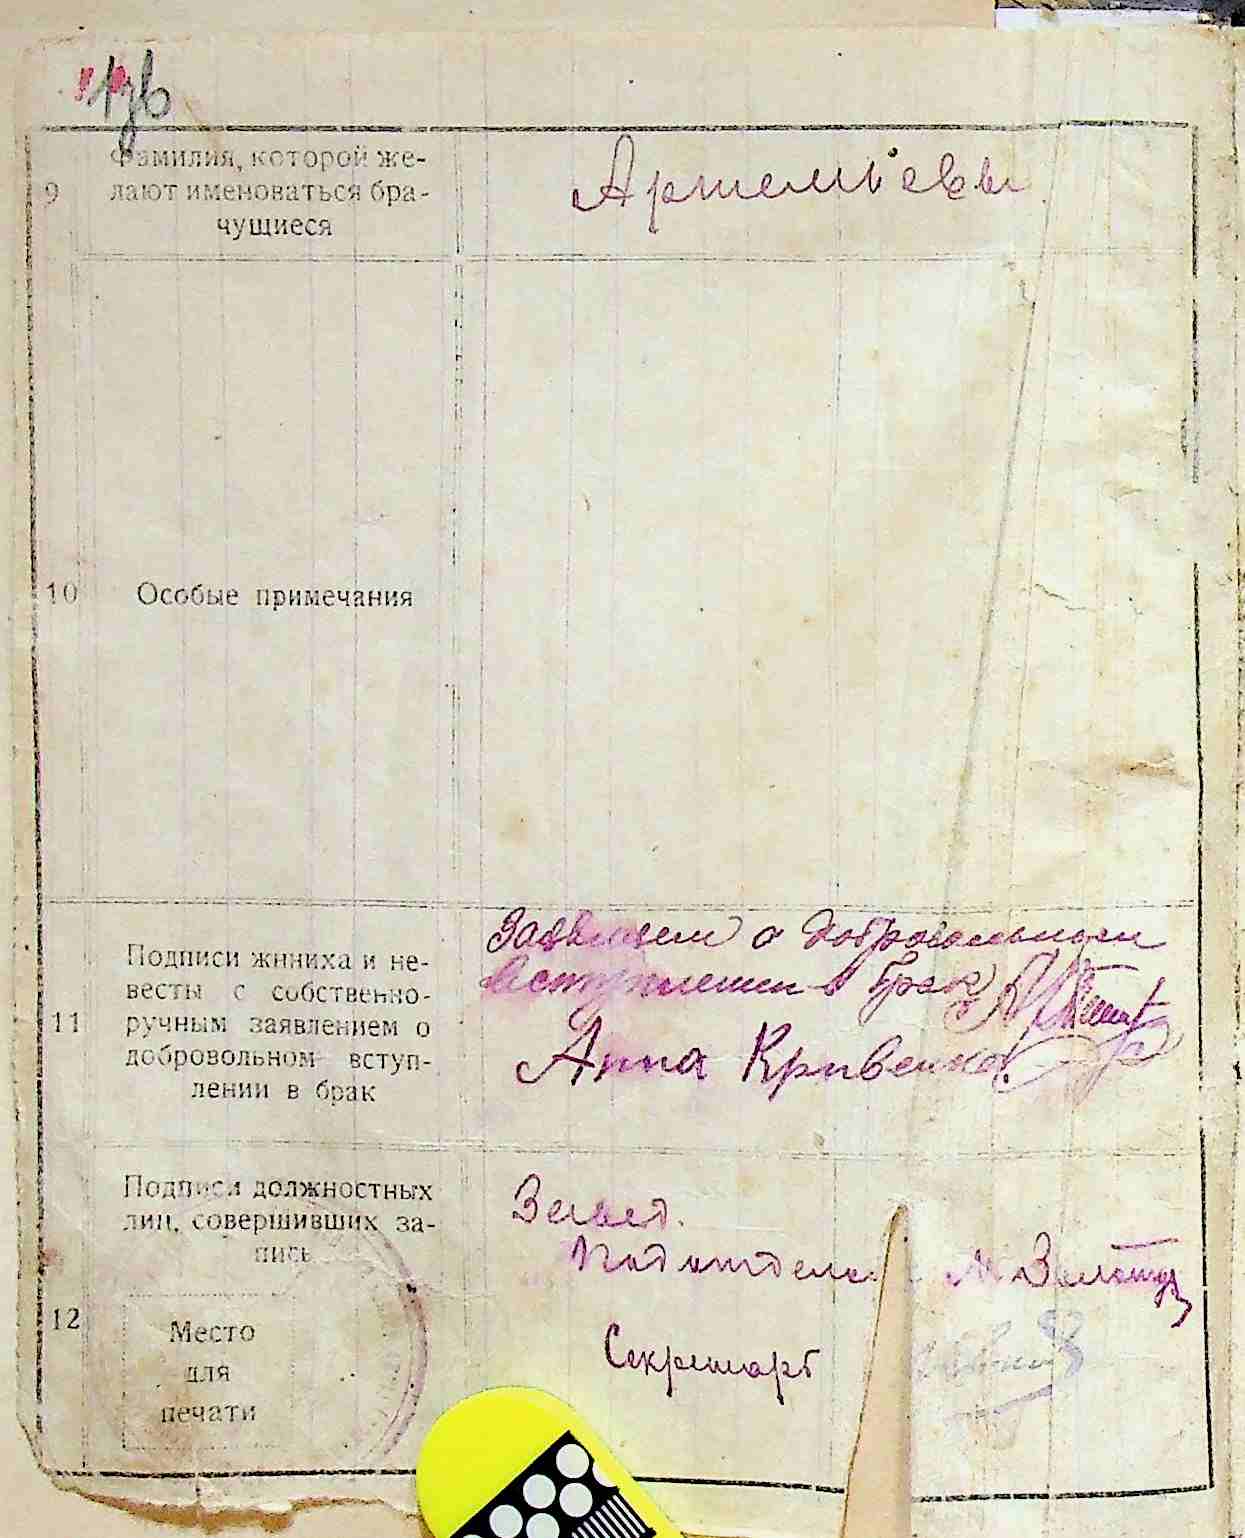 9
Фамилия, которой же-
лают именоваться бра-
чущиеся
Артемьевы
10
Особые примечания
11
Подписи жениха и не-
весты с собственно-
ручным заявлением о
добровольном вступ-
лении в брак
Заявляем о добровольном
вступлении в брак
Анна Кривенко
12
Подписи должностных
лиц, совершивших за-
пись
Завед.
Подотделом
Секретарь
Место
для
печати